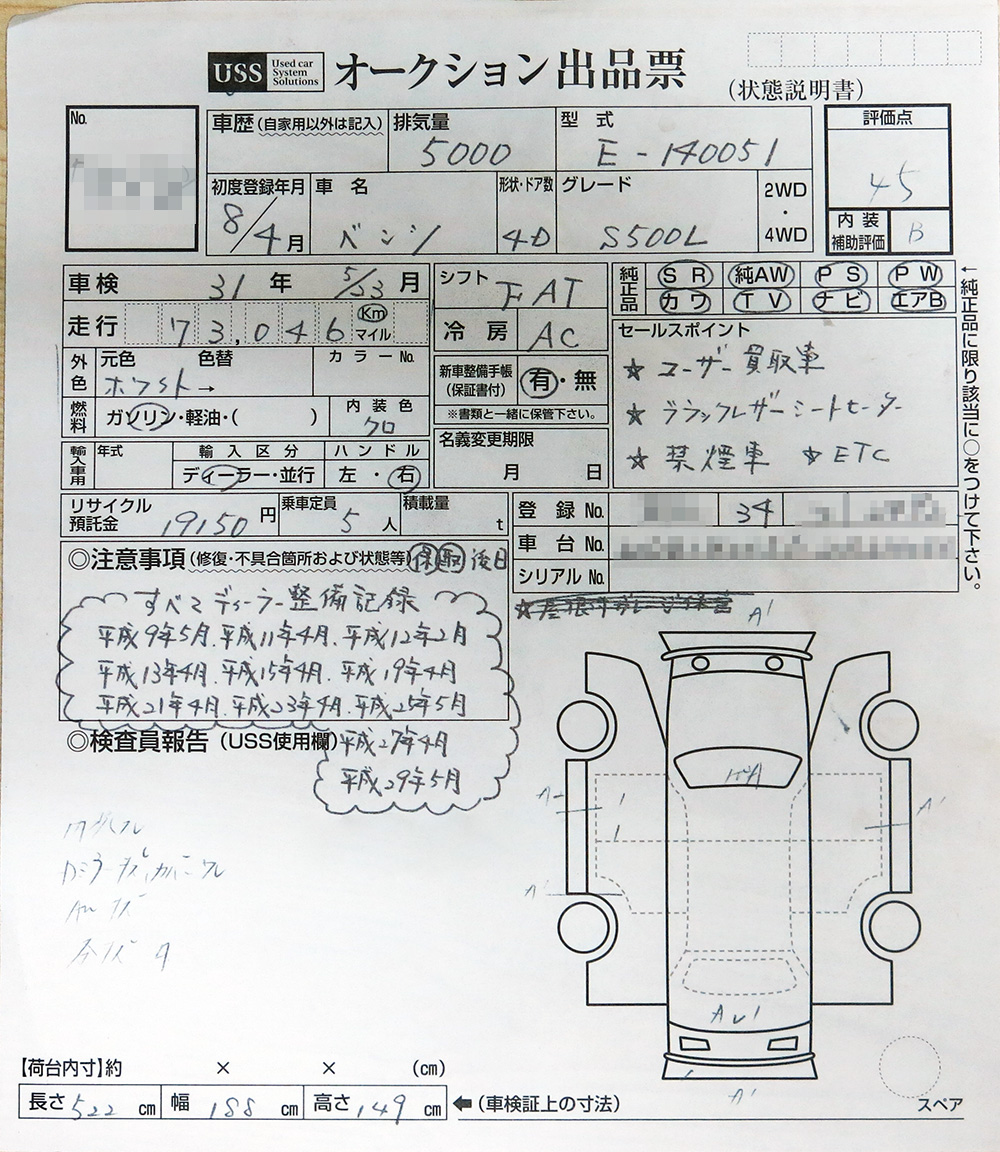 USS Used car System Solutions オークション出品票
(状態説明書)
No.
車歴(自家用以外は記入) 排気量 5000 型式 E-140051
評価点 45
初度登録年月 8/4月 車名 ベンツ 形状・ドア数 4D グレード S500L 2WD・4WD
内装補助評価 B
車検 31年 5/53月
走行 73,046 Km マイル
シフト FAT
冷房 AC
純正品 SR 純AW PS PW
カワ TV ナビ エアB
←純正品に限り該当に○をつけて下さい。
外色 元色 色替 カラーNo.
ホワイト→
燃料 ガソリン・軽油・( ) 内装色 クロ
新車整備手帳(保証書付) 有・無
※書類と一緒に保管下さい。
セールスポイント
☆ ユーザー買取車
☆ ブラックレザーシートヒーター
☆ 禁煙車 ☆ ETC
輸入車用 年式 輸入区分 ハンドル
ディーラー・並行 左・右
名義変更期限
月 日
リサイクル預託金 19150円 乗車定員 5人 積載量 t
登録No. 34
車台No.
シリアルNo.
◎注意事項(修復・不具合箇所および状態等) 保 取 後日
すべてディーラー整備記録
平成9年5月.平成11年4月.平成12年2月
平成13年4月.平成15年4月.平成19年4月
平成21年4月.平成23年4月.平成25年5月
◎検査員報告(USS使用欄) 平成27年4月
平成29年5月
A1
A1
A1
A1
【荷台内寸】約 × × (cm)
長さ 522 cm 幅 188 cm 高さ 149 cm ←(車検証上の寸法)
スペア